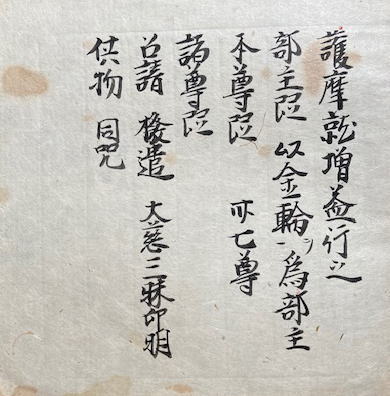 護摩就増益行之
部主段 以金輪ヲ為部主
本尊段 亦七尊
諸尊段
召請 撥遣 大慈三昧印明
供物 同咒